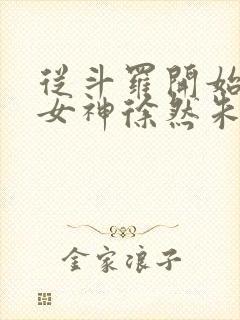 從斗羅開始
女神徐然朱
金家浪子